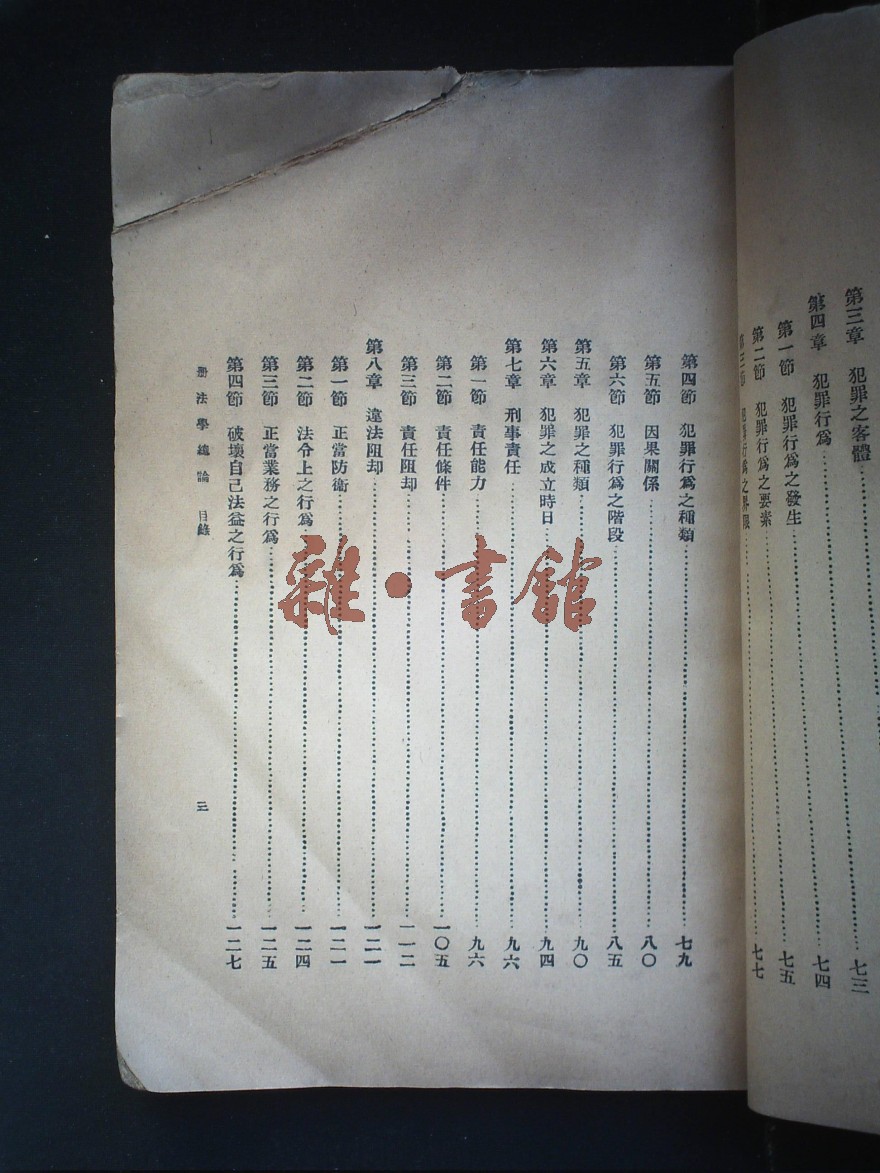 第三章　犯罪之客體……七三
第四章　犯罪行爲……七四
第一節　犯罪行爲之發生……七五
第二節　犯罪行爲之要素……七七
第三節　犯罪行爲之界限
第四節　犯罪行爲之種類……七九
第五節　因果關係……八〇
第六節　犯罪行爲之階段……八五
第五章　犯罪之種類……九〇
第六章　犯罪之成立時日……九四
第七章　刑事責任……九六
第一節　責任能力……九六
第二節　責任條件……一〇五
第三節　責任阻却……一一二
第八章　違法阻却……一二一
第一節　正當防衞……一二一
第二節　法令上之行爲……一二四
第三節　正當業務之行爲……一二五
第四節　破壞自己法益之行爲……一二七
刑法學總論　目錄　三
雜·書館